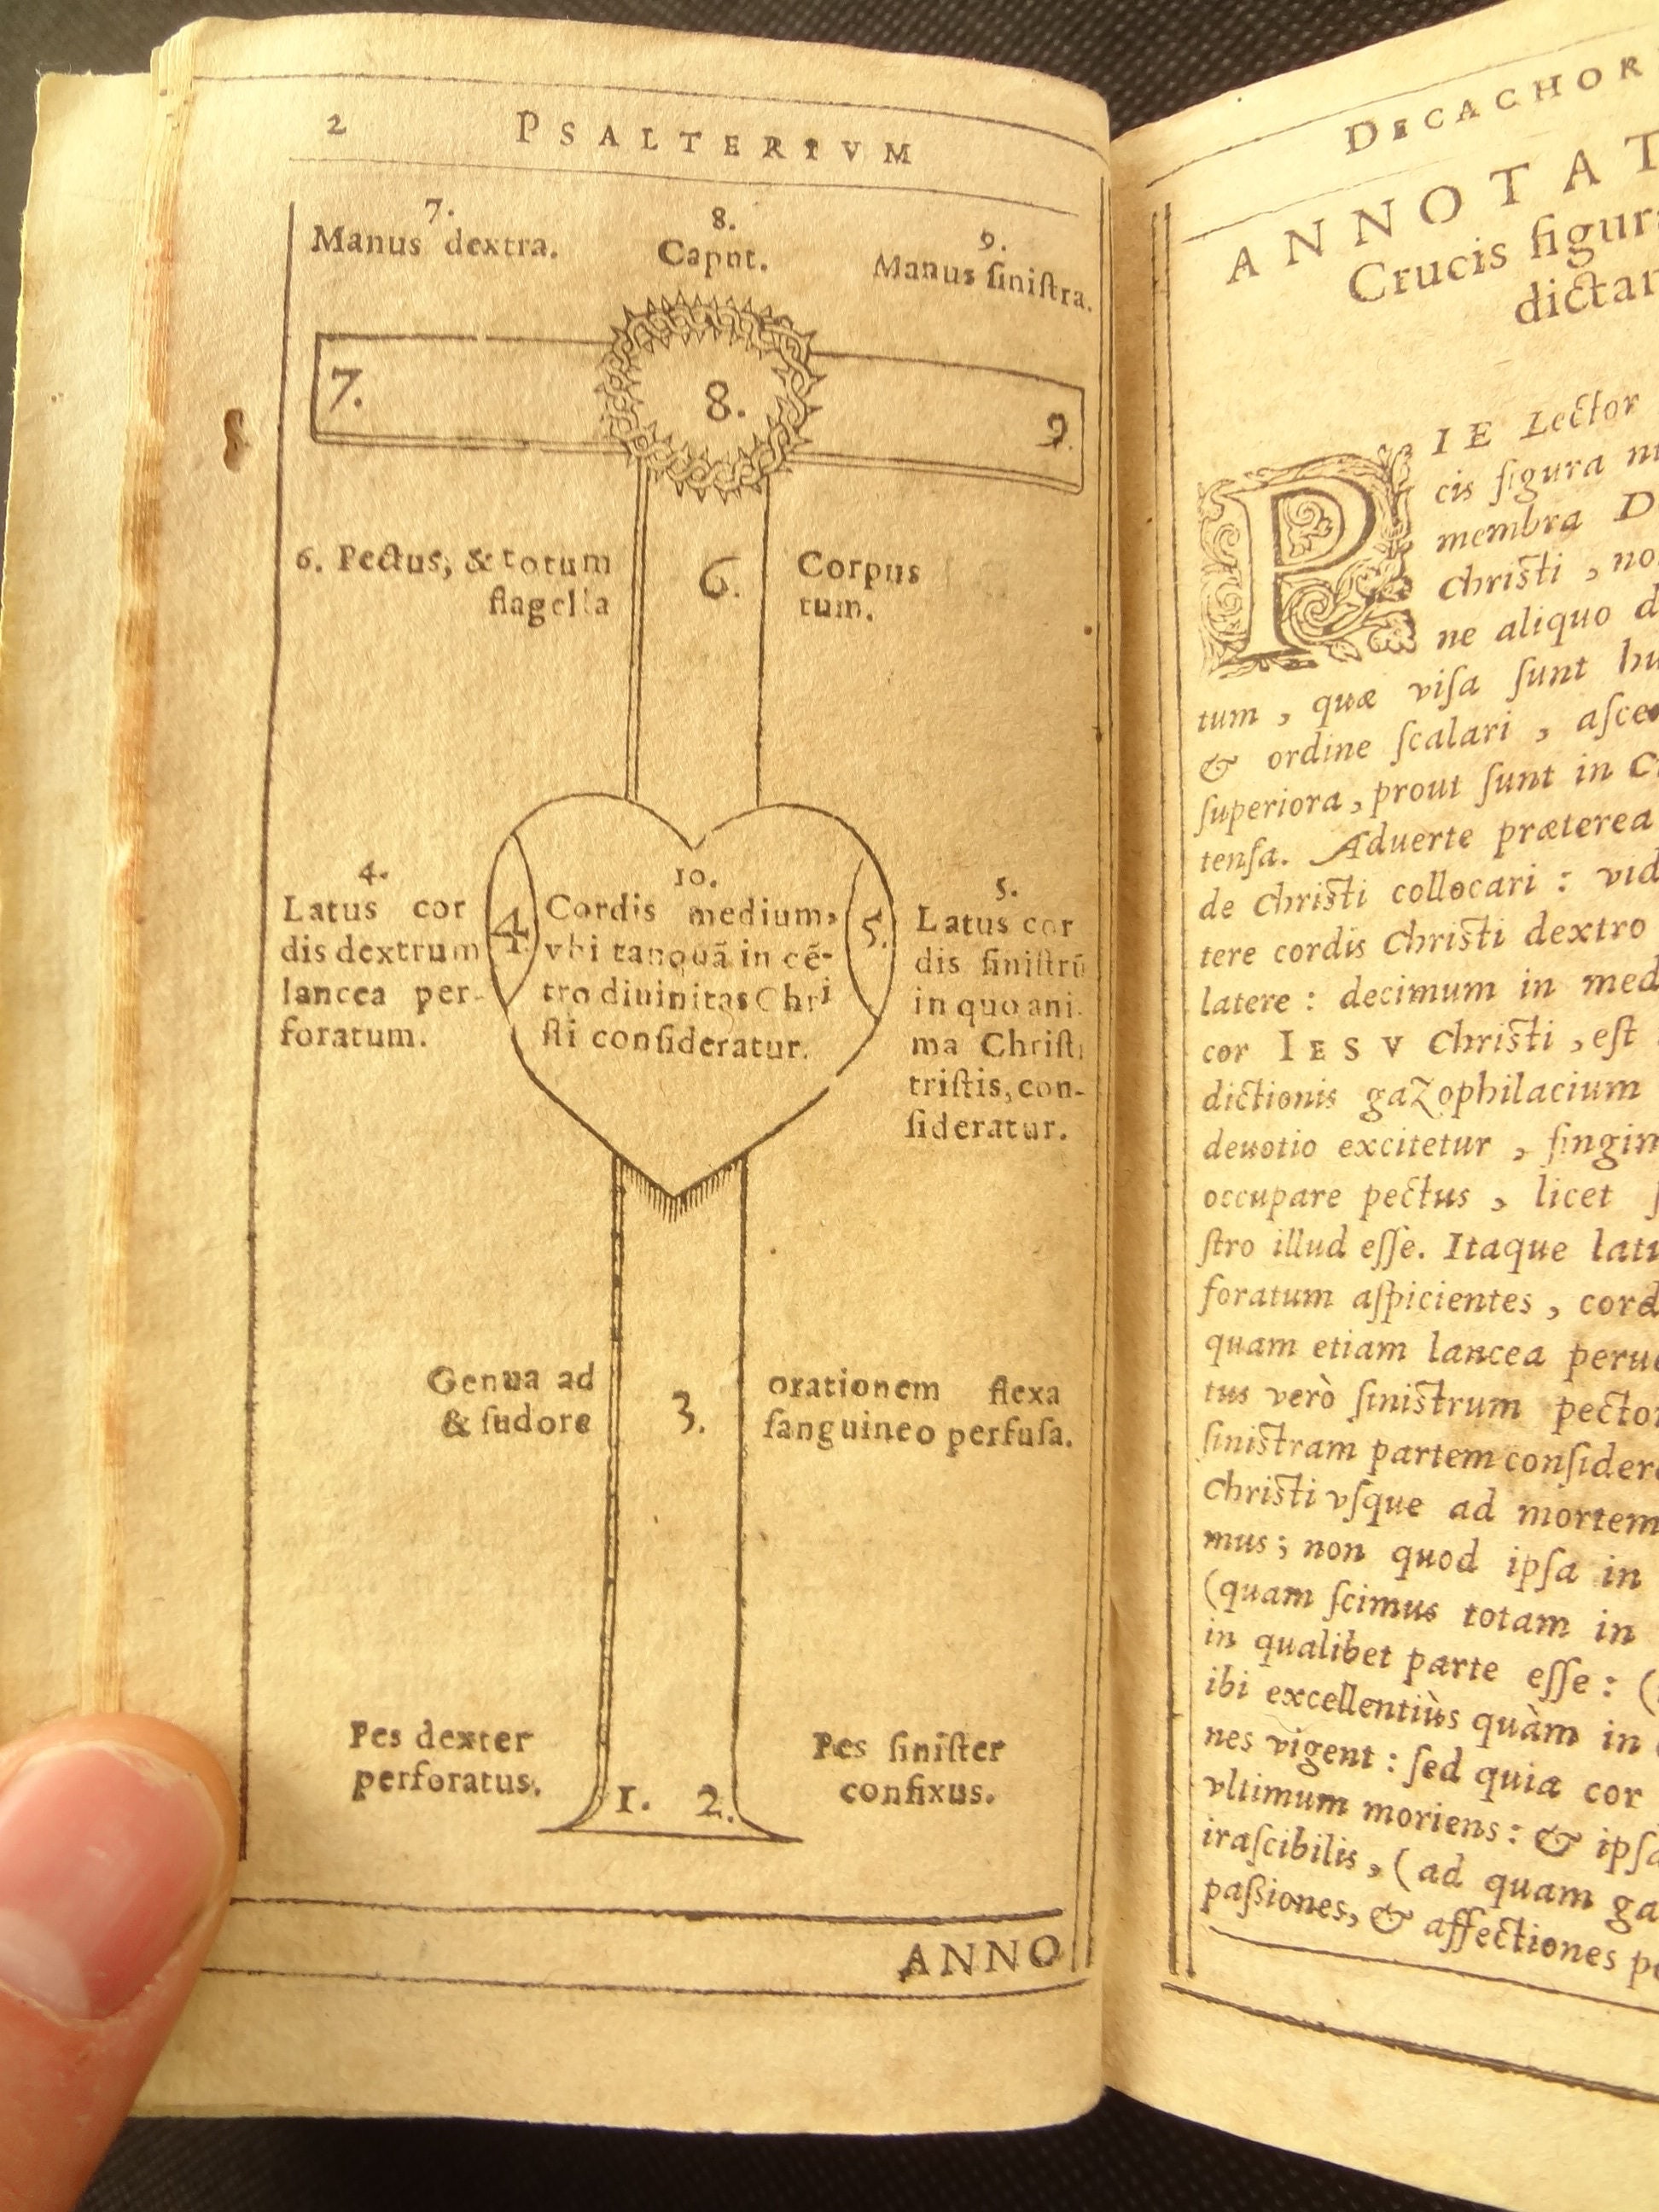 2 PSALTERIVM
7.
Manus dextra.
8.
Caput.
9.
Manus siniſtra.
7.
8.
9.
6. Pectus, & totum
flagella
6.
Corpus
tum.
4.
Latus cor
dis dextrum
lancea per-
foratum.
4.
10.
Cordis medium,
vbi tanquā in cē-
tro diuinitas Chri
ſti conſideratur.
5.
5.
Latus cor
dis ſiniſtrū
in quo ani
ma Chriſti
triſtis, con-
ſideratur.
Genua ad
& ſudore
3.
orationem flexa
ſanguineo perfuſa.
Pes dexter
perforatus.
1. 2.
Pes ſiniſter
confixus.
ANNO
DECACHOR
ANNOTAT
Crucis figur
dictar
PIE Lector
cis figura
membra D
Chriſti, no
ne aliquo d
tum, quæ viſa ſunt hu
& ordine ſcalari, aſce
ſuperiora, prout ſunt in C
tenſa. Aduerte præterea
de Chriſti collocari: vid
tere cordis Chriſti dextro
latere: decimum in med
cor IESV Chriſti, eſt
dictionis gaZophilacium
deuotio excitetur, fingim
occupare pectus, licet
ſtro illud eſſe. Itaque latu
foratum aſpicientes, cord
quam etiam lancea perue
tus verò ſiniſtrum pector
ſiniſtram partem conſider
Chriſti vſque ad mortem
mus; non quod ipſa in
(quam ſcimus totam in
in qualibet parte eſſe: (
ibi excellentiùs quàm in
nes vigent: ſed quia cor
vltimum moriens: & ipſa
iraſcibilis, (ad quam ga
paſsiones, & affectiones p